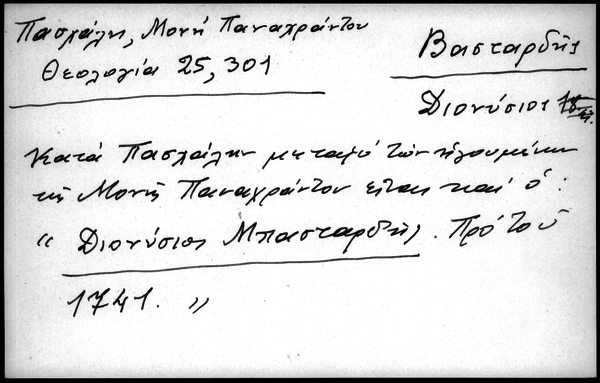 Πασχάλη, Μονή Παναχράντου
Θεολογία 25, 301
Βασταρδής
Διονύσιος
Κατά Πασχάλην μεταξύ των ηγουμένων
της Μονής Παναχράντου είναι και ο :
“ Διονύσιος Μπασταρδής. Πρό τού
1741. ”